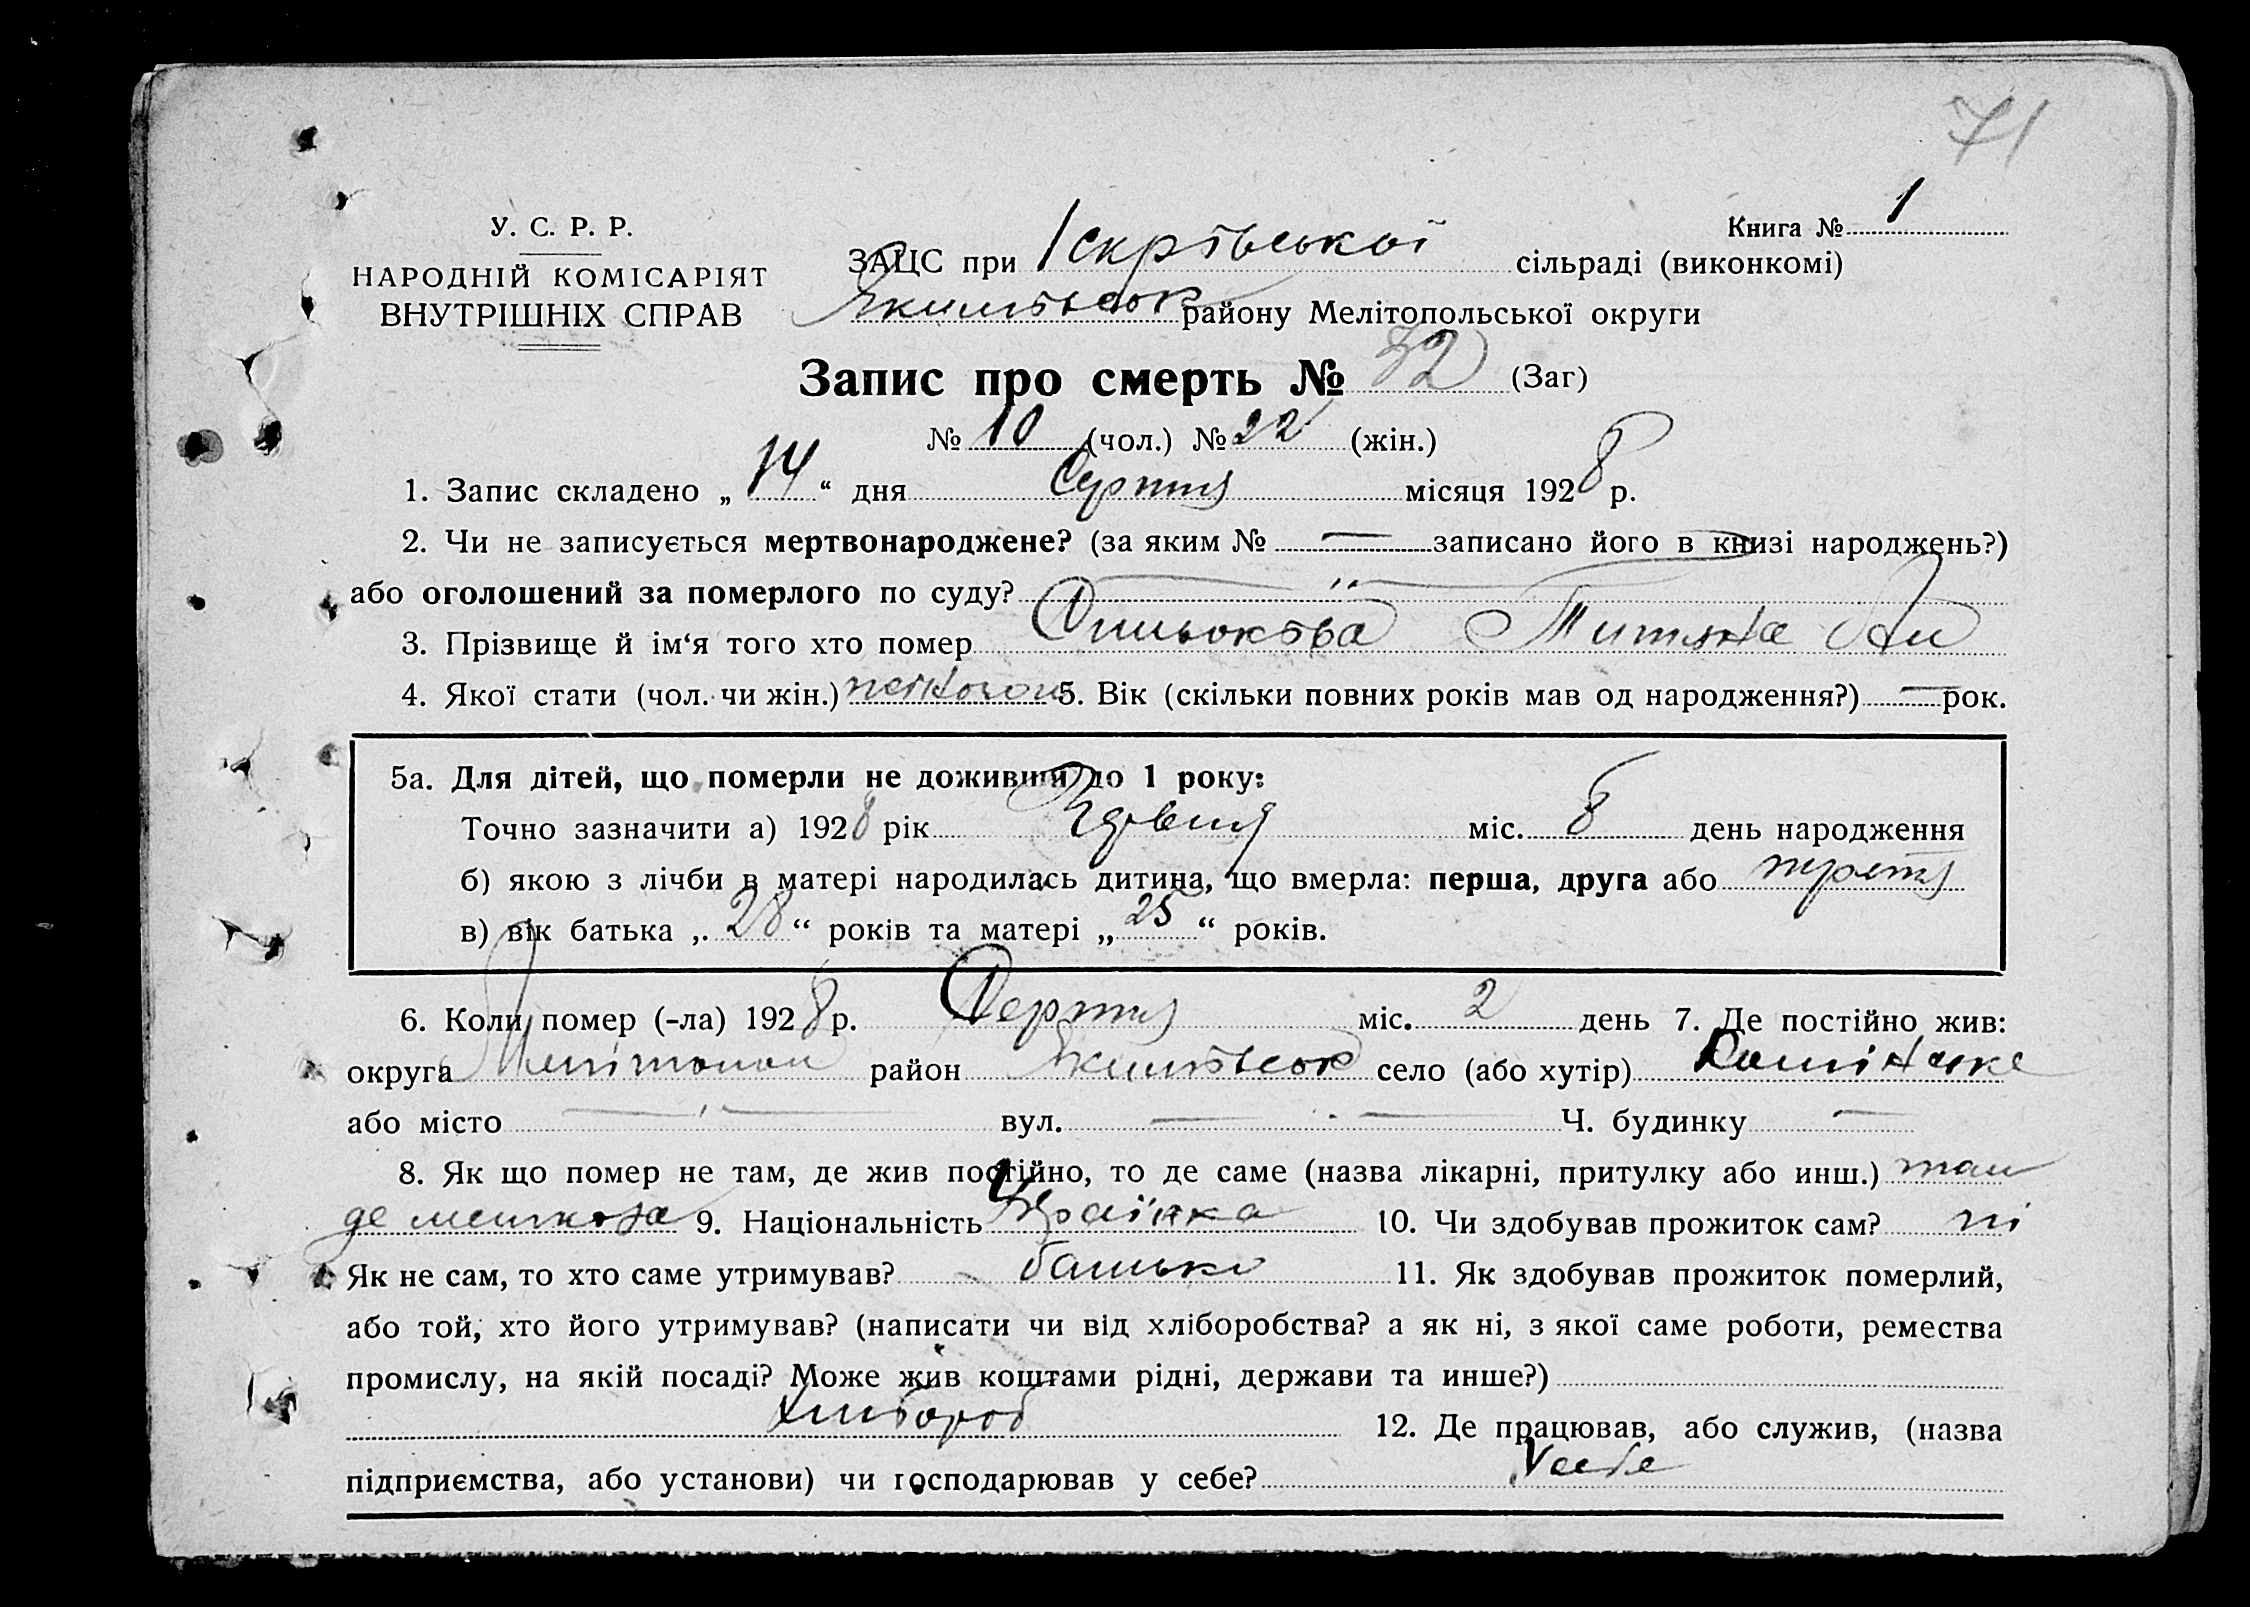 71
У. С. Р. Р.
НАРОДНІЙ КОМІСАРІЯТ
ВНУТРІШНІХ СПРАВ
Книга № 1
ЗАЦС при Іскрівської сільраді (виконкомі)
Якимівськ району Мелітопольської округи
Запис про смерть № 32 (Заг)
№ 10 (чол.) № 22 (жін.)
1. Запис складено „ 14 “ дня Серпня місяця 1928 р.
2. Чи не записується мертвонароджене? (за яким № — записано його в книзі народжень?)
або оголошений за померлого по суду? — „ —
3. Прізвище й ім‘я того хто помер Титяна
4. Якої стати (чол. чи жін.) 5. Вік (скільки повних років мав од народження?) — рок.
5а. Для дітей, що померли не доживши до 1 року:
Точно зазначити а) 1928 рік міс. 8 день народження
б) якою з лічби в матері народилась дитина, що вмерла: перша, друга або третя
в) вік батька „ 28 “ років та матері „ 25 “ років.
6. Коли помер (-ла) 1928 р. Серпня міс. 2 день 7. Де постійно жив:
округа Мелітопол район Якимівськ село (або хутір)
або місто — „ — вул. — „ — Ч. будинку —
8. Як що помер не там, де жив постійно, то де саме (назва лікарні, притулку або инш.) там
де мешкала 9. Національність Українка 10. Чи здобував прожиток сам? ні
Як не сам, то хто саме утримував? батько 11. Як здобував прожиток померлий,
або той, хто його утримував? (написати чи від хліборобства? а як ні, з якої саме роботи, ремества
промислу, на якій посаді? Може жив коштами рідні, держави та инше?)
Хлібороб 12. Де працював, або служив, (назва
підприємства, або установи) чи господарював у себе? У себе